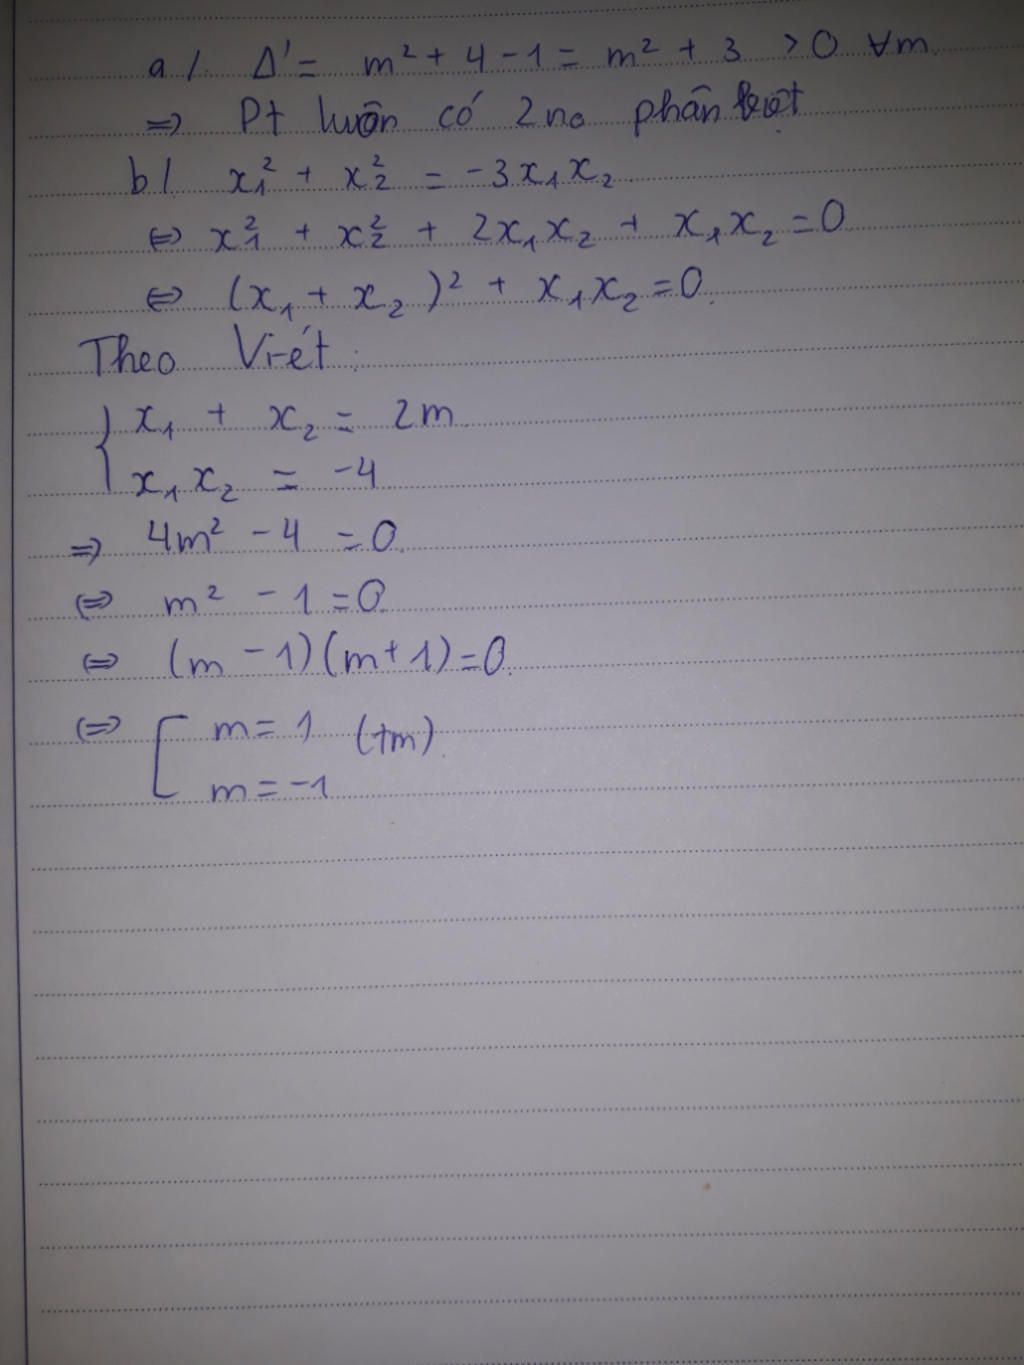 a/. Δ' = m² + 4 - 1 = m² + 3 > 0 ∀m.
=> Pt luôn có 2 no phân biệt
b/. x₁² + x₂² = -3x₁x₂.
<=> x₁² + x₂² + 2x₁x₂ + x₁x₂ = 0
<=> (x₁ + x₂)² + x₁x₂ = 0.
Theo Vi-ét:
{ x₁ + x₂ = 2m.
x₁x₂ = -4
=> 4m² - 4 = 0.
<=> m² - 1 = 0.
<=> (m - 1)(m + 1) = 0.
<=> [ m = 1 (tm).
m = -1